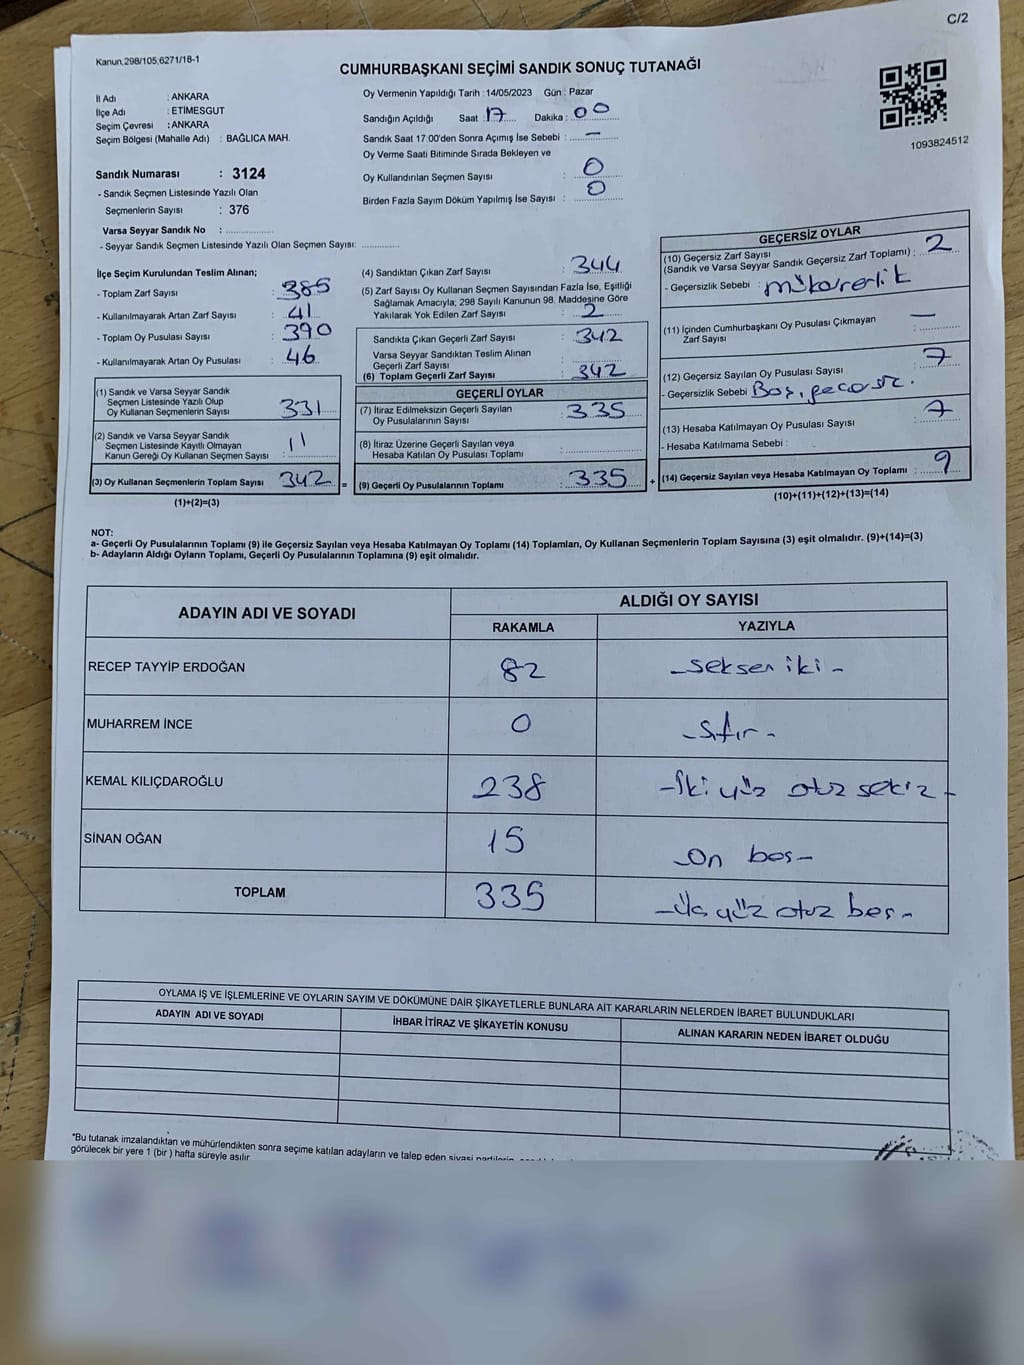 C/2
Kanun,298/105,6271/18-1
CUMHURBAŞKANI SEÇİMİ SANDIK SONUÇ TUTANAĞI
İl Adı : ANKARA
İlçe Adı : ETİMESGUT
Seçim Çevresi : ANKARA
Seçim Bölgesi (Mahalle Adı) : BAĞLICA MAH.
Oy Vermenin Yapıldığı Tarih : 14/05/2023 Gün : Pazar
Sandığın Açıldığı Saat : 17 Dakika : 00
Sandık Saat 17.00'den Sonra Açımış İse Sebebi : —
Oy Verme Saati Bitiminde Sırada Bekleyen ve
Oy Kullandırılan Seçmen Sayısı : 0
Birden Fazla Sayım Döküm Yapılmış İse Sayısı : 0
1093824512
Sandık Numarası : 3124
- Sandık Seçmen Listesinde Yazılı Olan
Seçmenlerin Sayısı : 376
Varsa Seyyar Sandık No :
- Seyyar Sandık Seçmen Listesinde Yazılı Olan Seçmen Sayısı:
İlçe Seçim Kurulundan Teslim Alınan;
- Toplam Zarf Sayısı : 385
- Kullanılmayarak Artan Zarf Sayısı : 41
- Toplam Oy Pusulası Sayısı : 390
- Kullanılmayarak Artan Oy Pusulası : 46
(1) Sandık ve Varsa Seyyar Sandık
Seçmen Listesinde Yazılı Olup
Oy Kullanan Seçmenlerin Sayısı : 331
(2) Sandık ve Varsa Seyyar Sandık
Seçmen Listesinde Kayıtlı Olmayan
Kanun Gereği Oy Kullanan Seçmen Sayısı : 11
(3) Oy Kullanan Seçmenlerin Toplam Sayısı : 342 =
(1)+(2)=(3)
(4) Sandıktan Çıkan Zarf Sayısı : 344
(5) Zarf Sayısı Oy Kullanan Seçmen Sayısından Fazla İse, Eşitliği
Sağlamak Amacıyla; 298 Sayılı Kanunun 98. Maddesine Göre
Yakılarak Yok Edilen Zarf Sayısı : 2
Sandıkta Çıkan Geçerli Zarf Sayısı : 342
Varsa Seyyar Sandıktan Teslim Alınan
Geçerli Zarf Sayısı :
(6) Toplam Geçerli Zarf Sayısı : 342
GEÇERLİ OYLAR
(7) İtiraz Edilmeksizin Geçerli Sayılan
Oy Pusulalarının Sayısı : 335
(8) İtiraz Üzerine Geçerli Sayılan veya
Hesaba Katılan Oy Pusulası Toplamı :
(9) Geçerli Oy Pusulalarının Toplamı : 335 +
GEÇERSİZ OYLAR
(10) Geçersiz Zarf Sayısı
(Sandık ve Varsa Seyyar Sandık Geçersiz Zarf Toplamı) : 2
- Geçersizlik Sebebi : mükererlik
(11) İçinden Cumhurbaşkanı Oy Pusulası Çıkmayan
Zarf Sayısı : —
(12) Geçersiz Sayılan Oy Pusulası Sayısı : 7
- Geçersizlik Sebebi Boş, geçersiz.
(13) Hesaba Katılmayan Oy Pusulası Sayısı : 7
- Hesaba Katılmama Sebebi :
(14) Geçersiz Sayılan veya Hesaba Katılmayan Oy Toplamı : 9
(10)+(11)+(12)+(13)=(14)
NOT:
a- Geçerli Oy Pusulalarının Toplamı (9) ile Geçersiz Sayılan veya Hesaba Katılmayan Oy Toplamı (14) Toplamları, Oy Kullanan Seçmenlerin Toplam Sayısına (3) eşit olmalıdır. (9)+(14)=(3)
b- Adayların Aldığı Oyların Toplamı, Geçerli Oy Pusulalarının Toplamına (9) eşit olmalıdır.
ADAYIN ADI VE SOYADI
ALDIĞI OY SAYISI
RAKAMLA YAZIYLA
RECEP TAYYİP ERDOĞAN 82 -seksen iki-
MUHARREM İNCE 0 -sıfır-
KEMAL KILIÇDAROĞLU 238 -İki yüz otuz sekiz-
SİNAN OĞAN 15 -On beş-
TOPLAM 335 -Üç yüz otuz beş-
OYLAMA İŞ VE İŞLEMLERİNE VE OYLARIN SAYIM VE DÖKÜMÜNE DAİR ŞİKAYETLERLE BUNLARA AİT KARARLARIN NELERDEN İBARET BULUNDUKLARI
ADAYIN ADI VE SOYADI İHBAR İTİRAZ VE ŞİKAYETİN KONUSU ALINAN KARARIN NEDEN İBARET OLDUĞU
*Bu tutanak imzalandıktan ve mühürlendikten sonra seçime katılan adayların ve talep eden siyasi partilerin
görülecek bir yere 1 (bir) hafta süreyle asılır